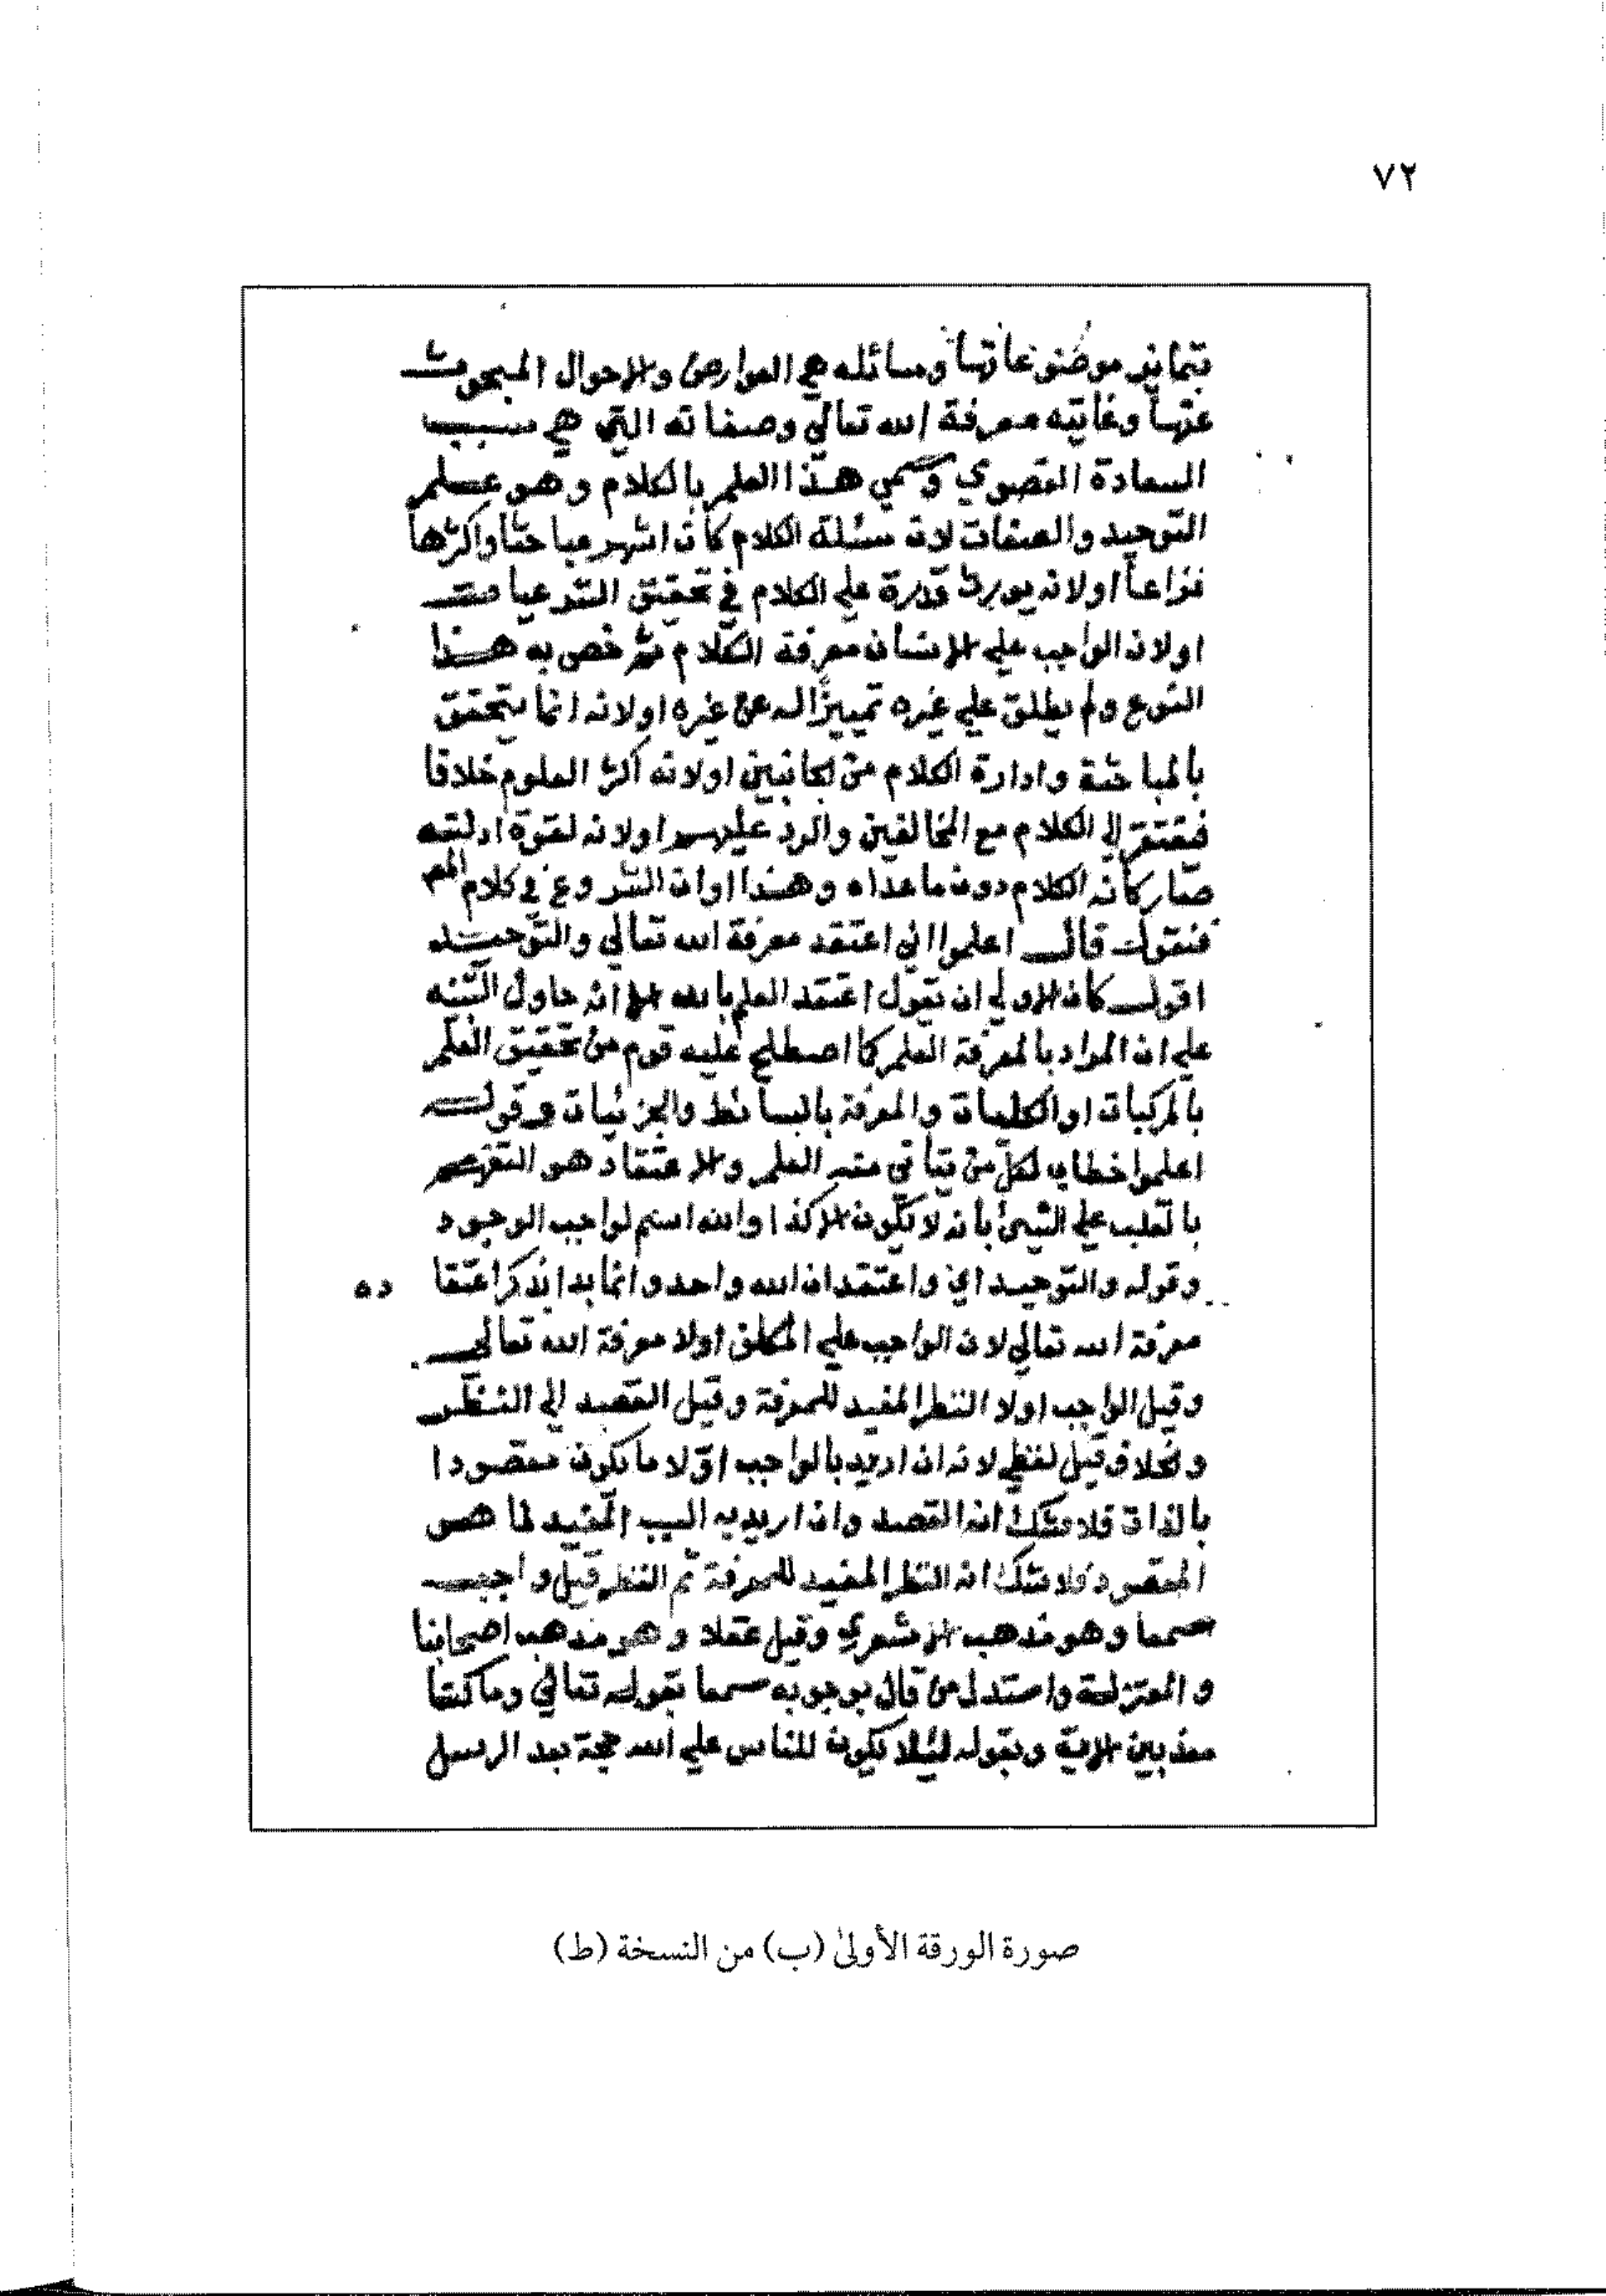 ٧٢
بتمايز موضوعاتها ومسائله هي العوارض والاحوال المبحوث
عنها وغايته معرفة الله تعالى وصفاته التي هي سبب
السعادة القصوي وسمي هذا العلم بالكلام وهو علم
التوحيد والصفات لان مسئلة الكلام كان اشهر مباحثا واكثرها
نزاعا اولانه يورث قدرة علي الكلام في تحقيق الشرعيات
اولان الواجب علي الانسان معرفة الكلام ثم خص به هذا
النوع ولم يطلق علي غيره تمييزا له عن غيره اولانه انما يتحقق
بالمباحثة وادارة الكلام من الجانبين اولانه اكثر العلوم خلافا
فيفتقر الي الكلام مع المخالفين والرد عليهم اولانه لقوة ادلته
صار كانه الكلام دون ما عداه وهذا اوان الشروع في كلام المص
فنقول قال اعلموا اني اعتقد معرفة الله تعالي والتوحيد له
اقول كان الاولي ان تقول اعتقد العلم بالله الا انه حاول التنبيه
علي ان المراد بالمعرفة العلم كما اصطلح عليه قوم من تحقيق العلم
بالمركبات او الكليات والمعرفة بالبسائط والجزئيات وقوله
اعلموا خطاب لكل من يتأتي منه العلم والاعتقاد هو التصميم
بالقلب علي الشيئ بانه لا يكون الا كذا والله اسم لواجب الوجود
وقوله والتوحيد اي واعتقد ان الله واحد وانما بدا بذكر اعتقا ده
معرفة الله تعالي لان الواجب علي المكلف اولا معرفة الله تعالي
وقيل الواجب اولا النظر المفيد للمعرفة وقيل القصد الي النظر
والخلاف قيل لفظي لانه ان اريد بالواجب اولا ما يكون مقصودا
بالذات فلا شك انه القصد وان اريد به السبب المفيد لما هو
المقصود فلا شك انه النظر المفيد للمعرفة ثم النظر قيل واجب
سمعا وهو مذهب الاشعري وقيل عقلا وهو مذهب اصحابنا
والمعتزلة واستدل من قال بوجوبه سمعا بقوله تعالي وما كنا
معذبين الاية وبقوله لئلا يكون للناس علي الله حجة بعد الرسل
صورة الورقة الأولىٰ (ب) من النسخة (ط)